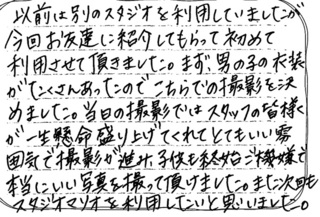 以前は別のスタジオを利用していましたが
今回お友達に紹介してもらって初めて
利用させて頂きました。まず男の子の衣装
がたくさんあったのでこちらでの撮影を決
めました。当日の撮影ではスタッフの皆様
が一生懸命盛り上げてくれてとてもいい雰
囲気で撮影が進み、子供も終始ご機嫌で
本当にいい写真を撮って頂けました。また次回も
スタジオマリオを利用したいと思いました。